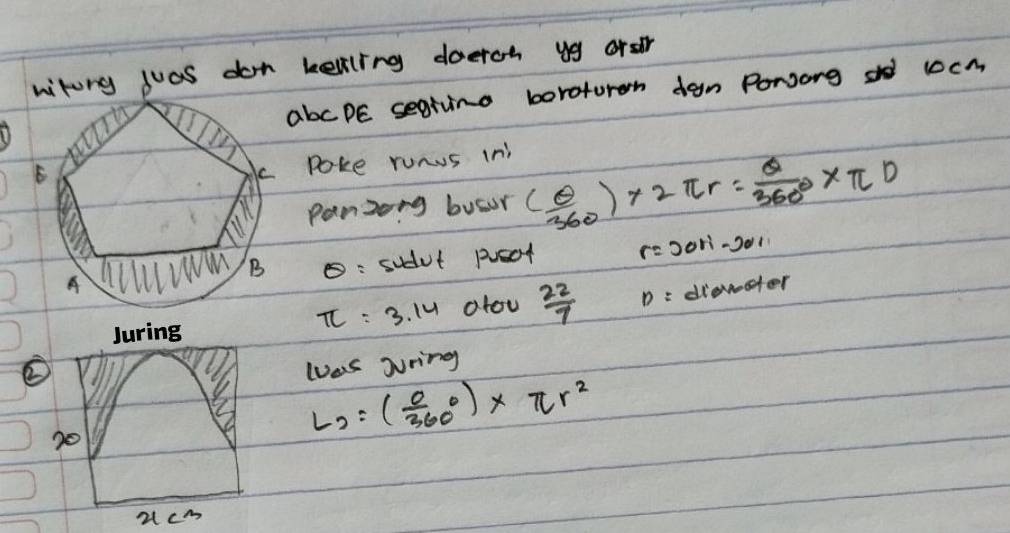 hitung luas dan keliling daerah yg arsir
abc PE segilima beraturan dgn Panjang sisi 10 cm
1
E
C
A
B
Pake rumus ini
Panjang busur (θ/360) × 2 πr = θ/360° × π D
θ : sudut pusat r = jari-jari
π : 3.14 atau 22/7 D : diameter
Juring
2
20
21 cm
luas Juring
LJ = (θ/360°) × πr²